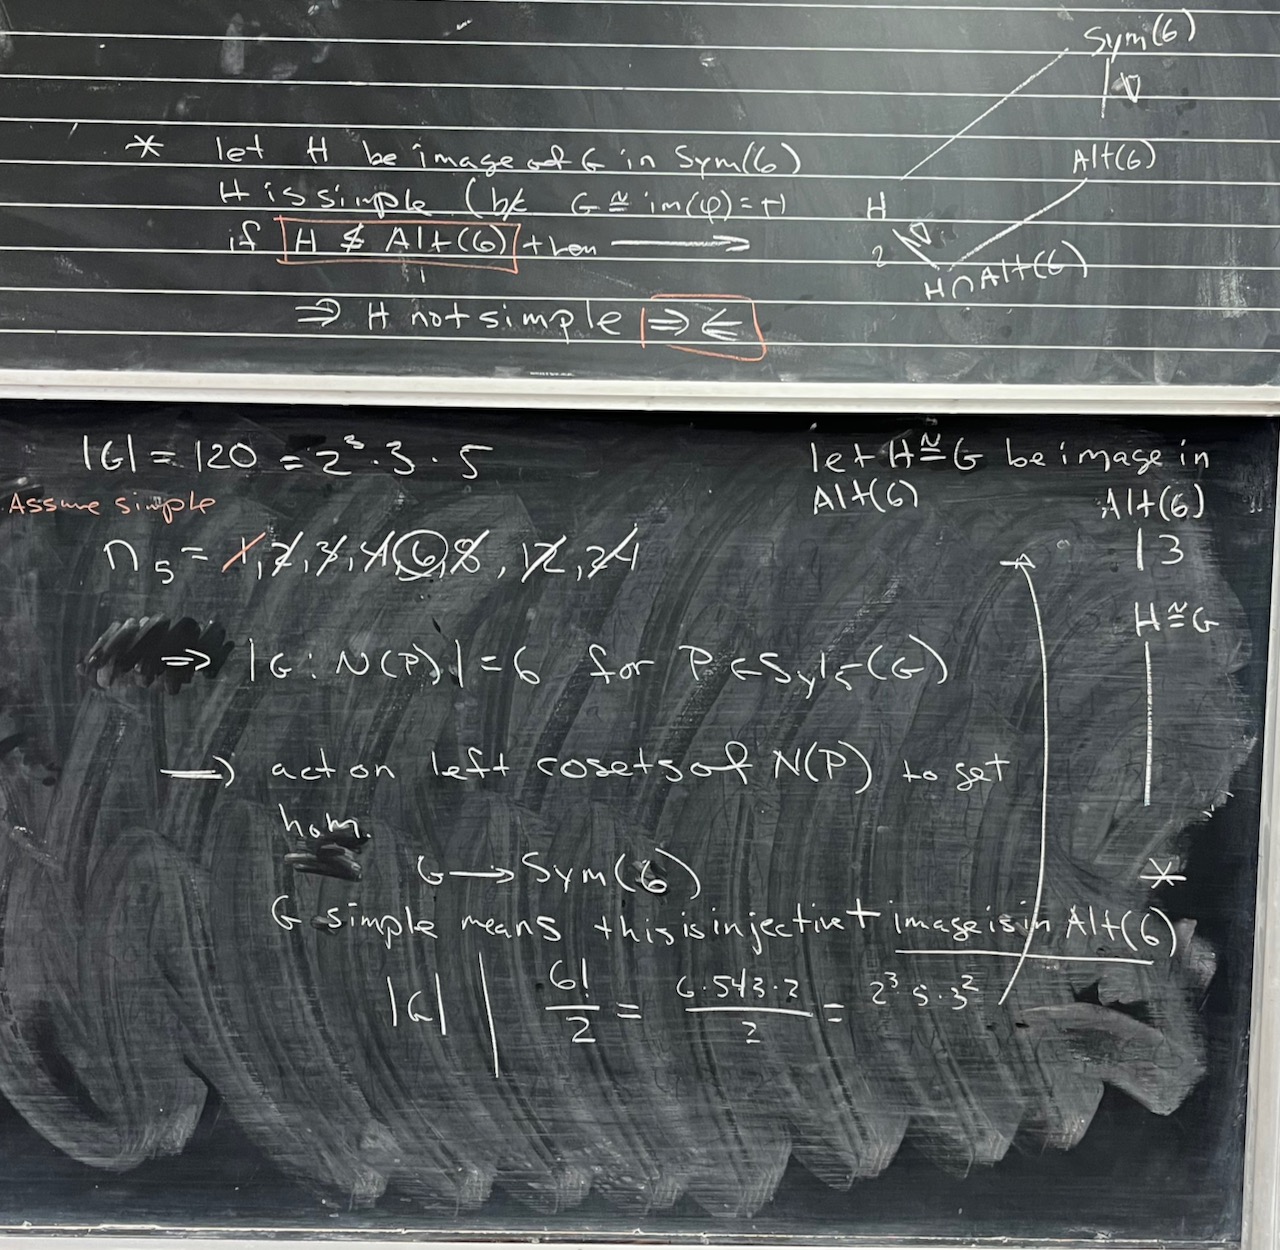 Sym(6)
* let H be image of G in Sym(6)
Alt(6)
H is simple (b/c G ≅ im(φ) = H
H
if H ≰ Alt(6) then ⟶
2
H∩Alt(6)
⇒ H not simple ⇒⇐
|G| = 120 = 2³·3·5
Assume simple
n₅ = 1, 2, 3, 4, 6, 8, 12, 24
⇒ |G : N(P)| = 6 for P ∈ Syl₅(G)
⟶ act on left cosets of N(P) to get
hom.
G ⟶ Sym(6)
G simple means this is injective + image is in Alt(6)
|G| | 6!/2 = 6·543·2/2 = 2³·5·3²
let H ≅ G be image in
Alt(6)
Alt(6)
| 3
H ≅ G
*